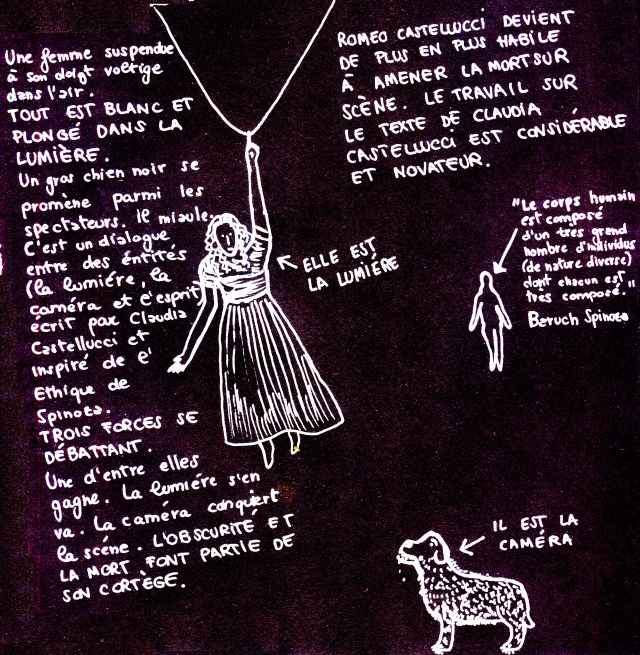 Une femme suspendue
à son doigt voltige
dans l'air.
TOUT EST BLANC ET
PLONGÉ DANS LA
LUMIÈRE.
Un gros chien noir se
promène parmi les
spectateurs. Il miaule.
C'est un dialogue
entre des éntités
(la lumiére, la
caméra et l'esprit)
écrit par Claudia
Castellucci et
inspiré de l'
Ethique de
Spinoza.
TROIS FORCES SE
DÉBATTANT.
Une d'entre elles
gagne. La lumiére s'en
va. La caméra conquiert
la scéne. L'OBSCURITÉ ET
LA MORT FONT PARTIE DE
SON CORTÈGE.
ROMEO CASTELLUCCI DEVIENT
DE PLUS EN PLUS HABILE
À AMENER LA MORT SUR
SCÈNE. LE TRAVAIL SUR
LE TEXTE DE CLAUDIA
CASTELLUCCI EST CONSIDÉRABLE
ET NOVATEUR.
ELLE EST
LA LUMIÉRE
"Le corps humain
est composé
d'un très grand
nombre d'individus
(de nature diverse)
dont chacun est
très composé."
Baruch Spinoza
IL EST LA
CAMÉRA